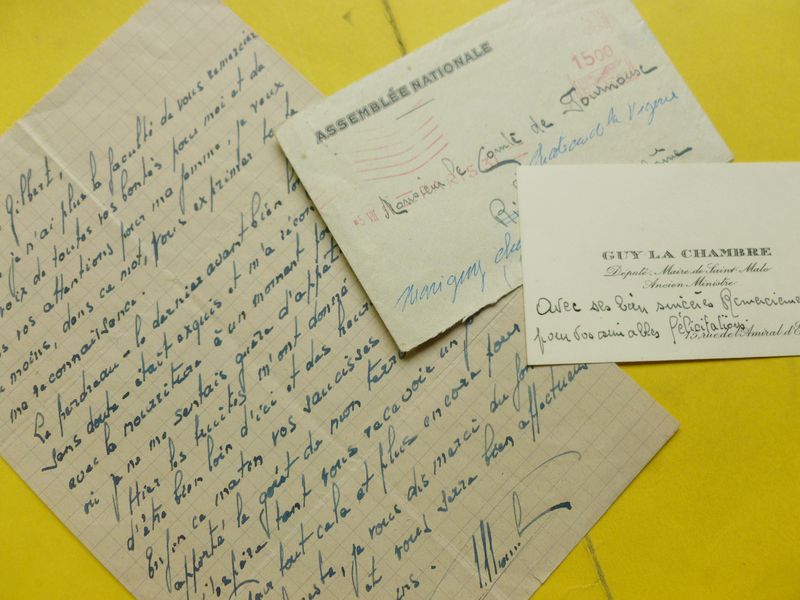 Gilbert,
je n'ai plus la faculté de vous remercier
de toutes vos bontés pour moi et de
vos attentions pour ma femme, je veux
moins, dans ce mot, vous exprimer
ma reconnaissance.
Le perdreau - le dernier avant bien
sans doute - était exquis et m'a
avec la nourriture à un moment
où je ne me sentais guère d'appétit
Hier les truites m'ont donné
d'être bien loin d'ici et des
Enfin ce matin vos saucisses
apporté le goût de mon
J'espère tant vous recevoir un
tout cela et plus encore pour
je vous dis merci du
et vous serre bien affectueuse
ASSEMBLÉE NATIONALE
1500
Monsieur le Comte de Tournouse
Chateau de la Vigerie
Marigny
GUY LA CHAMBRE
Député-Maire de Saint-Malo
Ancien Ministre
Avec ses bien sincères Remerciemen
pour vos aimables félicitations
15, rue de l'Amiral d'E